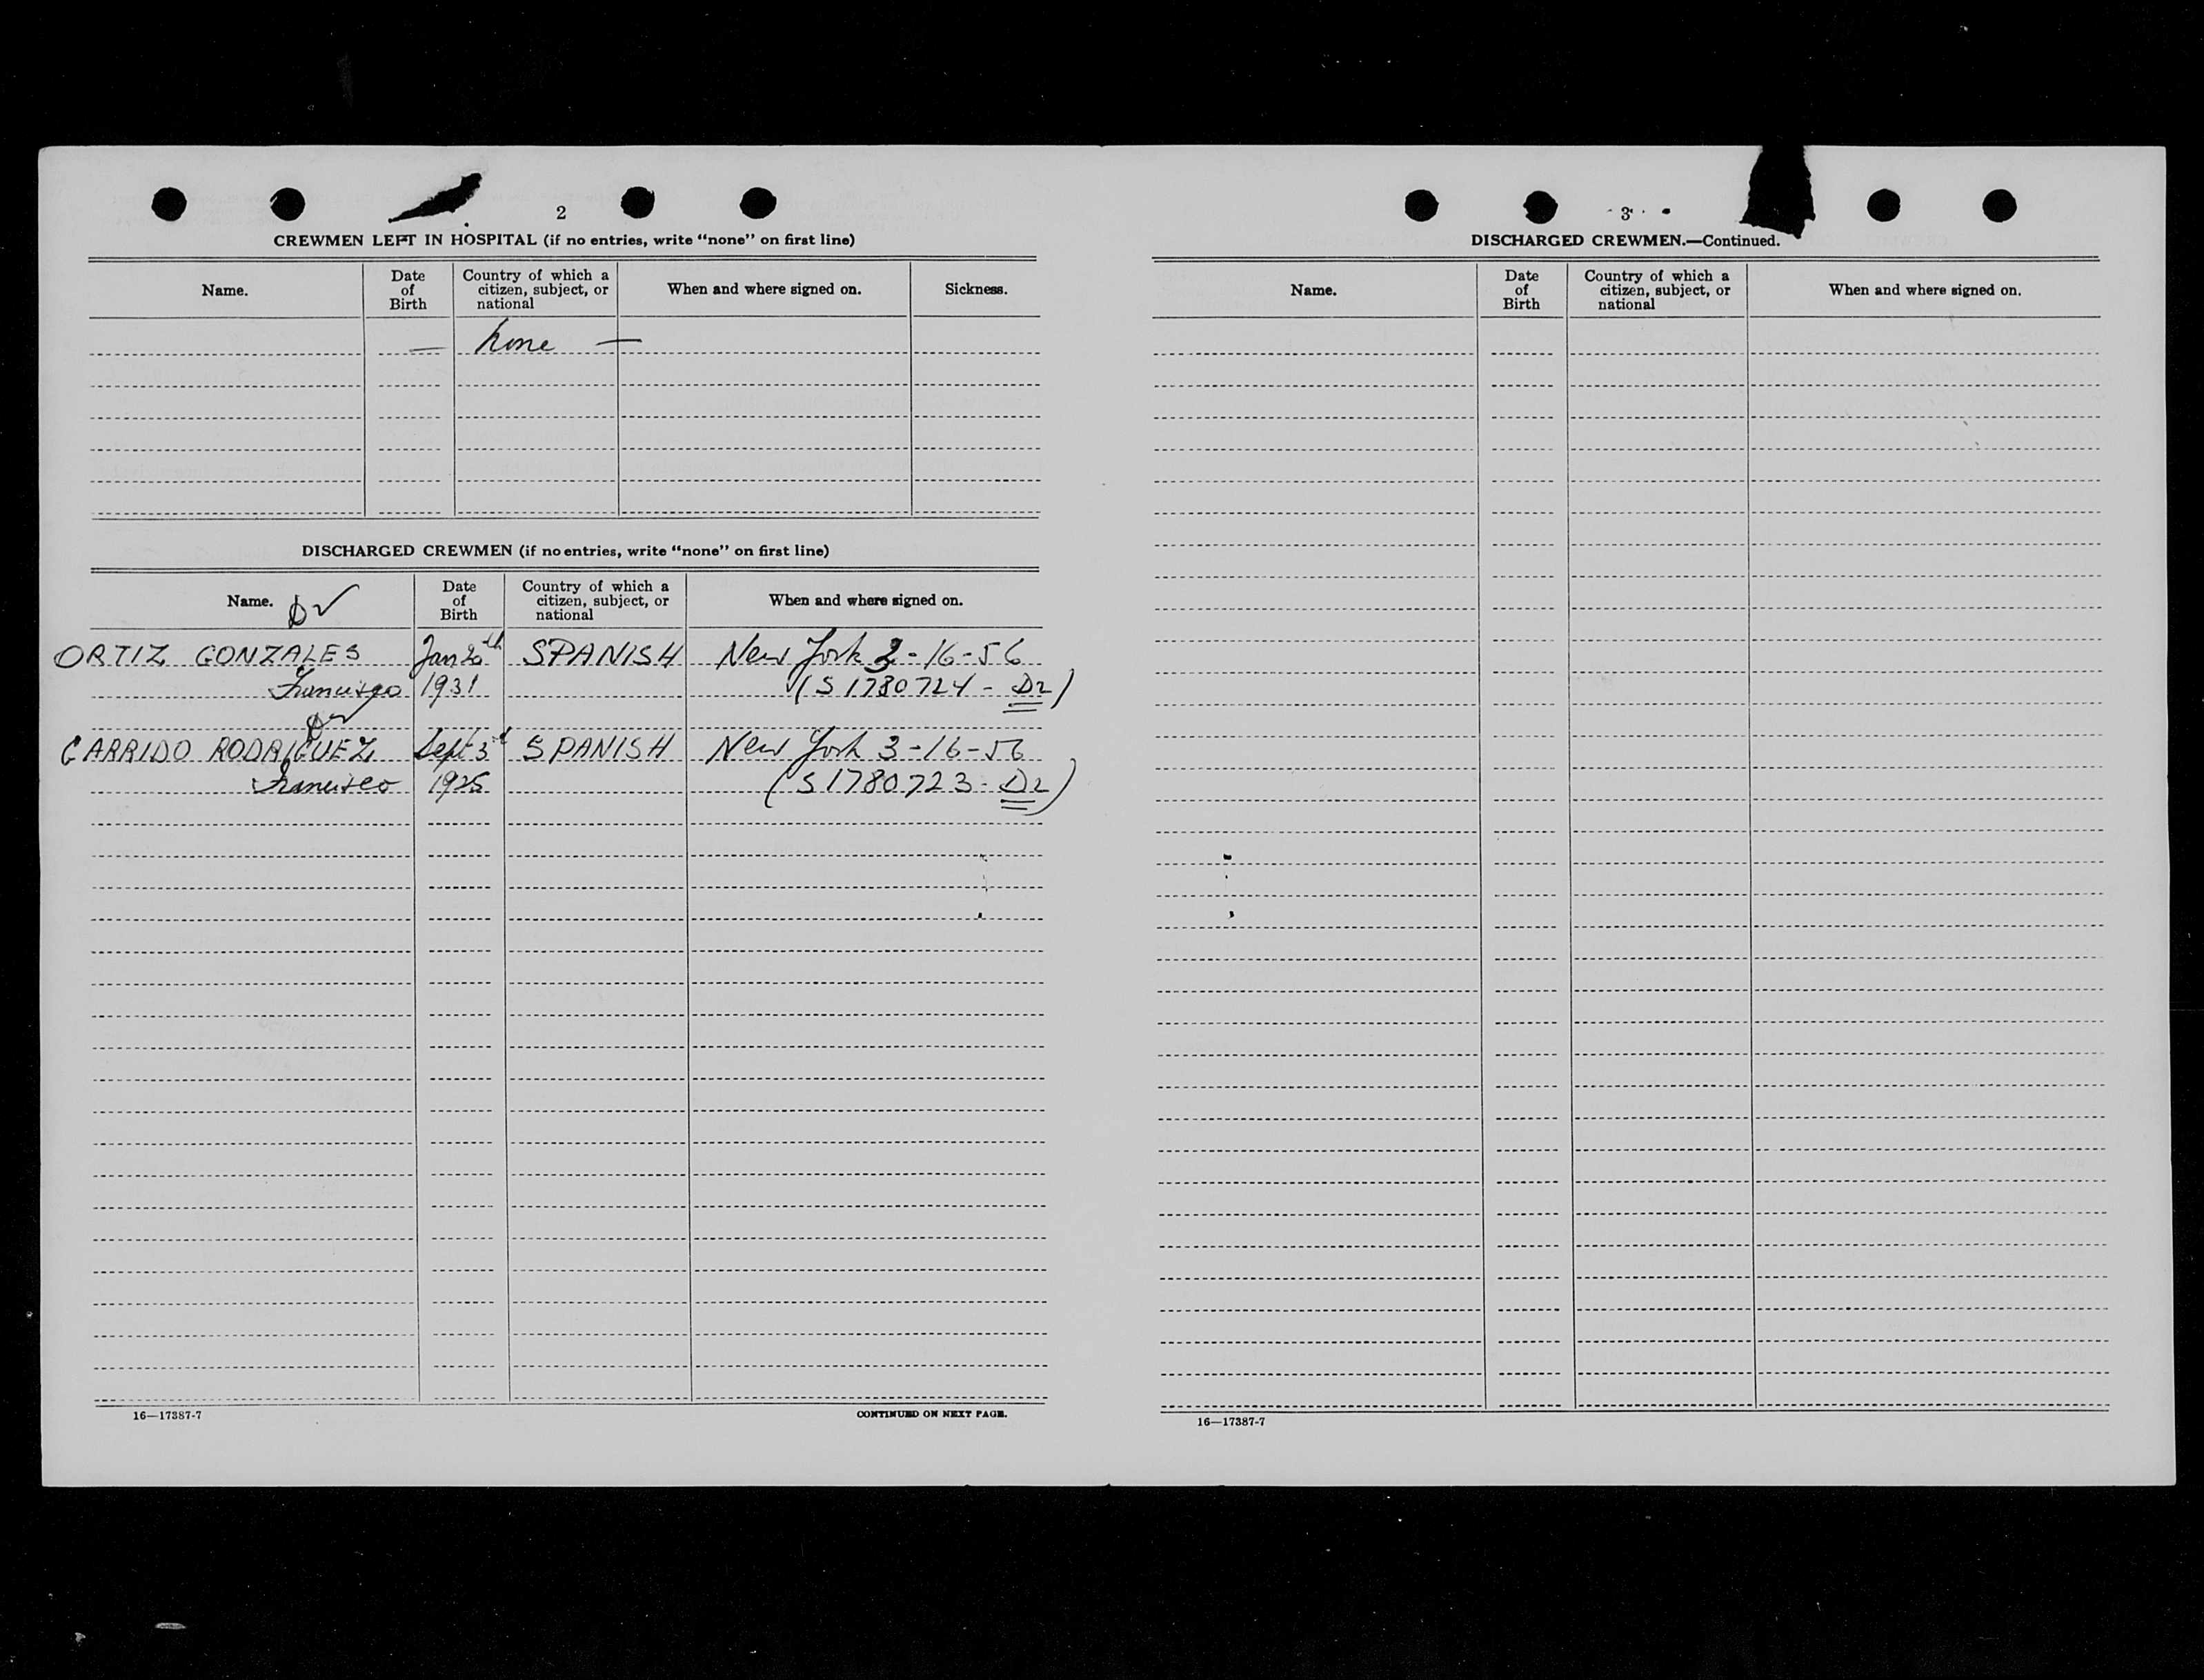 2
CREWMEN LEFT IN HOSPITAL (if no entries, write "none" on first line)
Name. Date of Birth Country of which a citizen, subject, or national When and where signed on. Sickness.
— none —
DISCHARGED CREWMEN (if no entries, write "none" on first line)
Name. Date of Birth Country of which a citizen, subject, or national When and where signed on.
ORTIZ GONZALES Jan 20th SPANISH New York 3-16-56
Francisco 1931 (S 1780724 - D2)
GARRIDO RODRIGUEZ Sept 3d SPANISH New York 3-16-56
Francisco 1925 (S 1780723 - D2)
16—17387-7 CONTINUED ON NEXT PAGE.
3
DISCHARGED CREWMEN.—Continued.
Name. Date of Birth Country of which a citizen, subject, or national When and where signed on.
16—17387-7